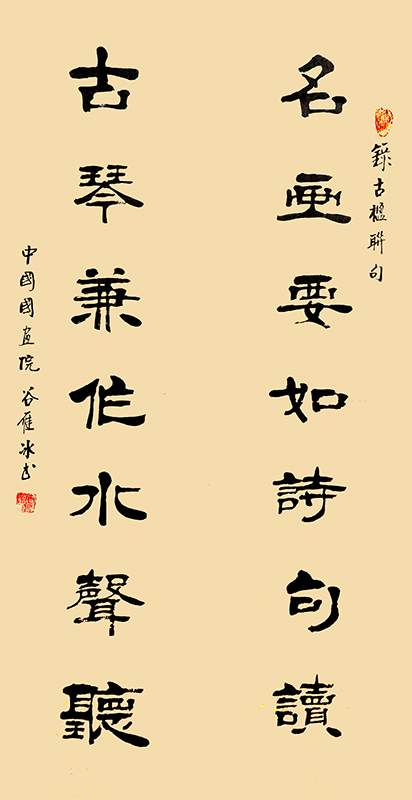 錄古楹聯句
名画要如詩句讀
古琴兼作水聲聽
中國國画院 谷雁冰书